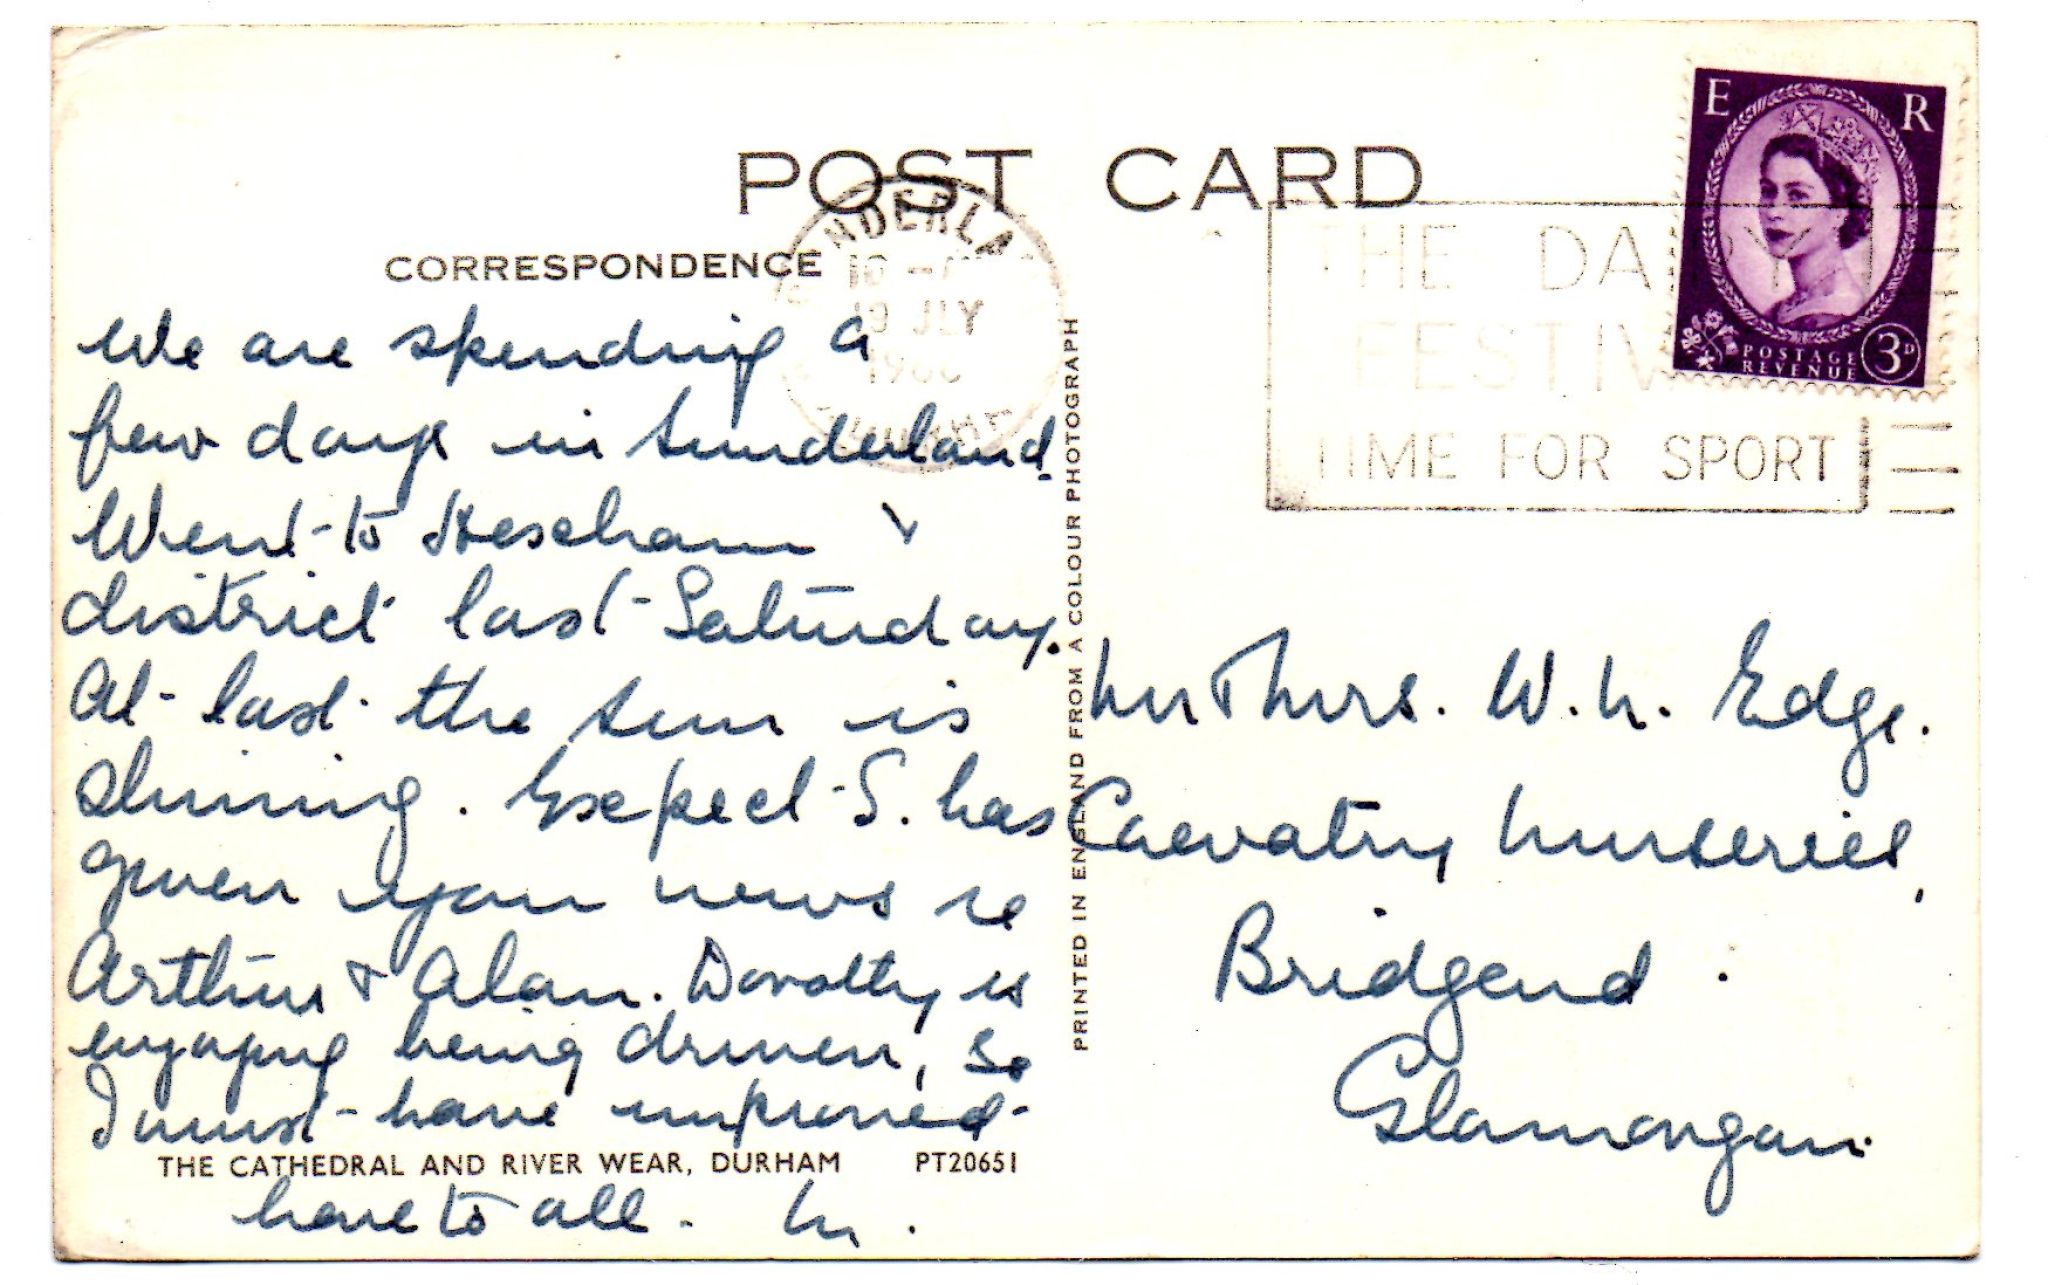 POST CARD
CORRESPONDENCE
We are spending a
few days in Sunderland.
Went to Hexham
district last Saturday.
At last the sun is
shining. Expect S. has
given you news re
Arthur & Alan. Dorothy is
enjoying being driven, so
I must have improved
THE CATHEDRAL AND RIVER WEAR, DURHAM PT20651
love to all. M.
PRINTED IN ENGLAND FROM A COLOUR PHOTOGRAPH
NDERLA
19 JLY
THE DA
FESTIV
TIME FOR SPORT
E R
POSTAGE
REVENUE
3D
Mr & Mrs. W. H. Edge.
Caevatry Nurseries,
Bridgend.
Glamorgan.